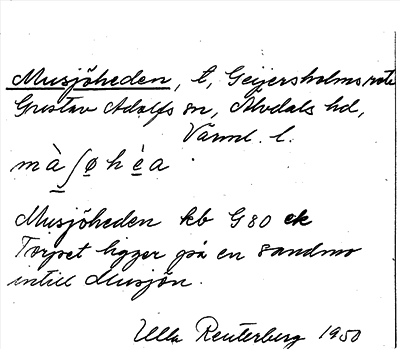 Musjöheden, t, Geijersholms rote
Gustav Adolfs sn, Älvdals hd,
Värml. l.
mà ʃø hèa
Musjöheden kb G80 ek
Torpet ligger på en sandmo
intill Musjön.
Ulla Reuterberg 1950